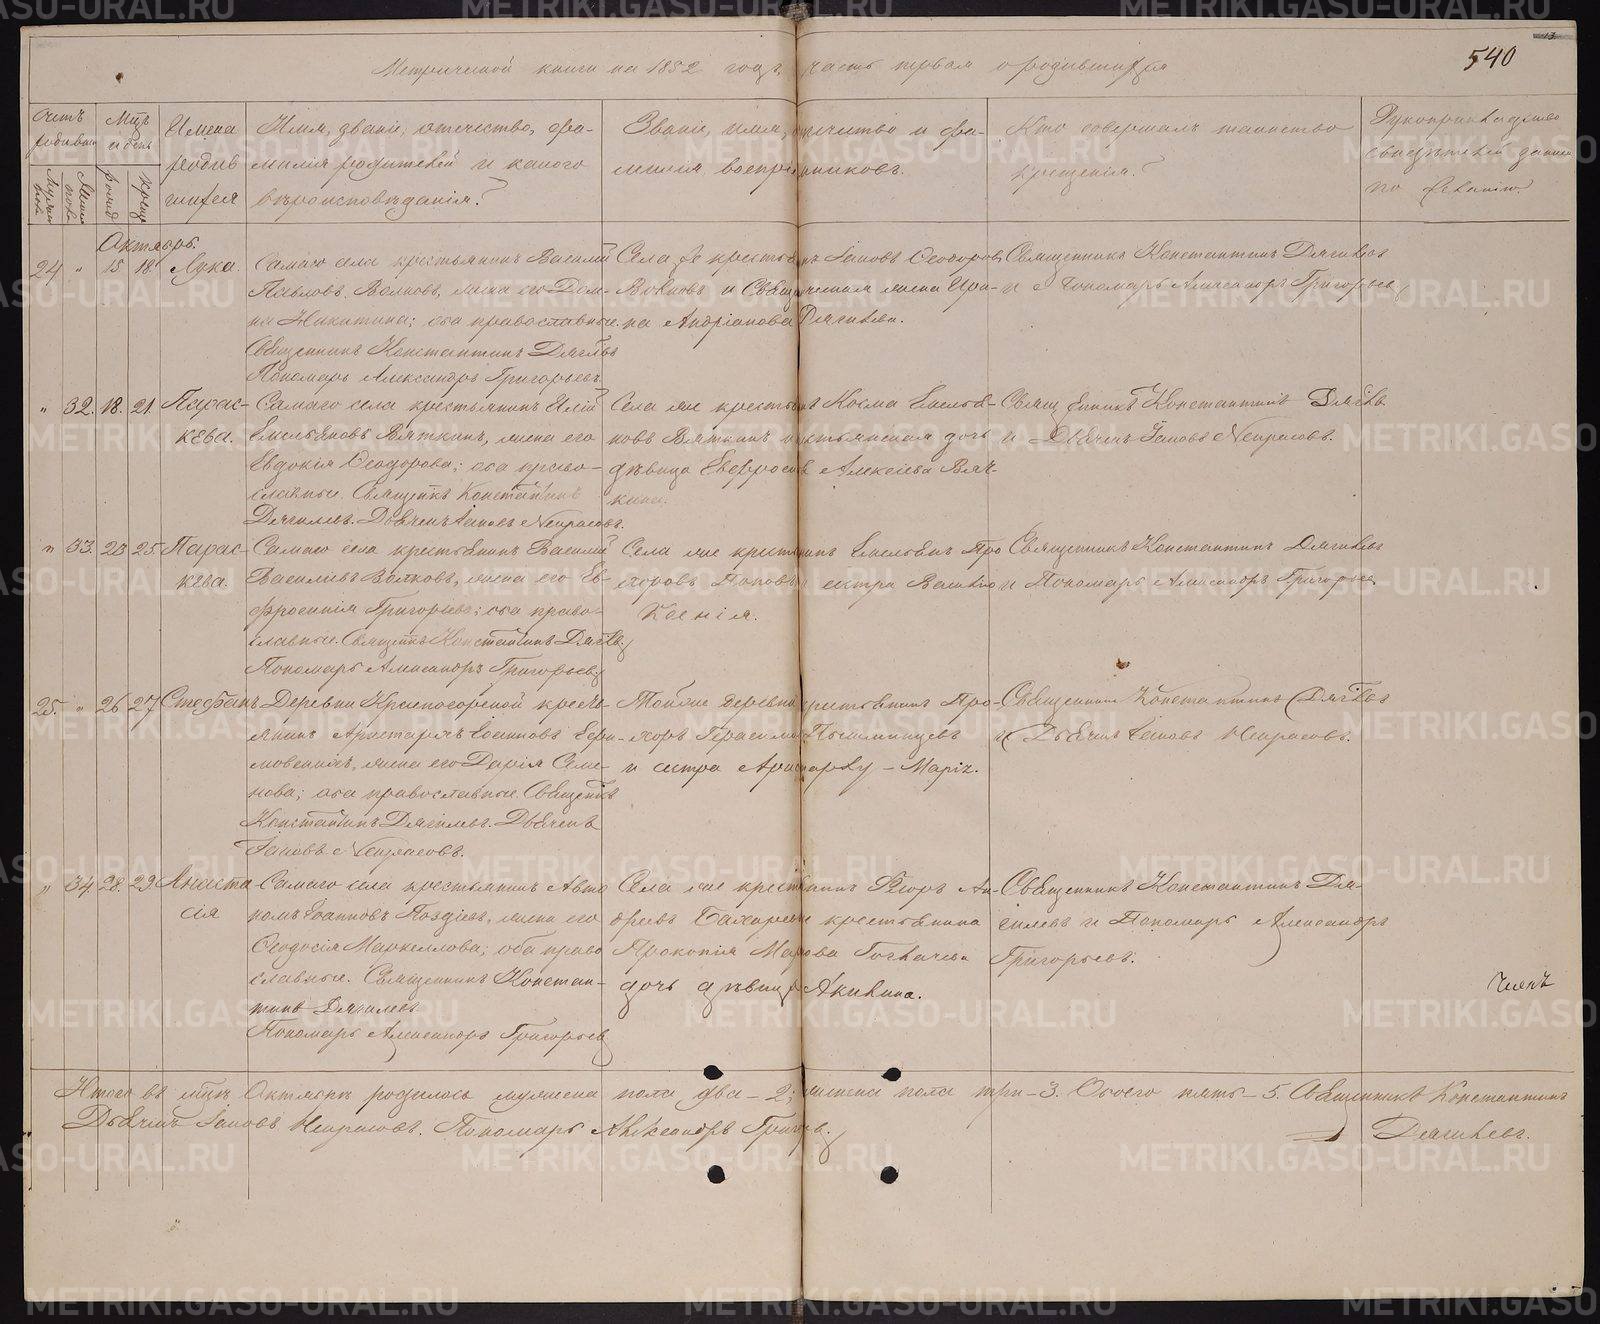 540
Метрической книги на 1852 годъ, часть первая о родившихся
Счетъ родивш
Мужеска
Женска
Мѣсяцъ и день
рожд
крещ
Имена родив
шихся
Имя, званіе, отечество, фа-
милія родителей и какого
вѣроисповѣданія?
Званіе, имя, отчество и фа-
милія воспріемниковъ.
Кто совершалъ таинство
крещенія?
Рукоприкладство
свидѣтелей записи
по желанію.
Октябрь.
24 " 15 18 Лука.
Самаго села крестьянинъ Василій
Павловъ Волковъ, жена его Дом-
на Никитина; оба православные.
Священникъ Константинъ Дягилевъ
Пономарь Александръ Григорьевъ
Села же крестьянинъ Іаковъ Ѳеодоровъ
Волковъ и Священническая жена Ири-
на Андріанова Дягилева.
Священникъ Константинъ Дягилевъ
и Пономарь Александръ Григорьевъ
" 32. 18. 21. Парас-
кева.
Самаго села крестьянинъ Илій
Емельяновъ Вяткинъ, жена его
Евдокія Ѳеодорова; оба право-
славные. Священникъ Константинъ
Дягилевъ. Дьячекъ Іаковъ Некрасовъ.
Села же крестьянинъ Косма Емелья-
новъ Вяткинъ и крестьянская дочь
дѣвица Евфросинія Алексіева Вят-
кина.
Священникъ Константинъ Дягилевъ
и Дьячекъ Іаковъ Некрасовъ.
" 33. 23 25 Парас-
кева.
Самаго села крестьянинъ Василій
Васильевъ Волковъ, жена его Ев-
фросинія Григорьева; оба право-
славные. Священникъ Константинъ Дягилевъ
Пономарь Александръ Григорьевъ
Села же крестьянинъ Емельянъ Про
хоровъ Поповъ и сестра Василію
Ксенія.
Священникъ Константинъ Дягилевъ
и Пономарь Александръ Григорьевъ
25. " 26 27 Стефанъ
Деревни Красногорской кресть-
янинъ Аристархъ Іоанновъ
жена его Дарія Семе-
нова; оба православные. Священникъ
Константинъ Дягилевъ. Дьячекъ
Іаковъ Некрасовъ.
Той же деревни крестьянинъ Про-
хоръ Герасимовъ Пышминцевъ
и сестра Аристарху – Марія.
Священникъ Константинъ Дягилевъ
и Дьячекъ Іаковъ Некрасовъ.
" 34 28. 29 Анаста
сія
Самаго села крестьянинъ Авто
номъ Іоанновъ Поздѣевъ, жена его
Ѳеодосія Маркеллова; оба право
славные. Священникъ Констан-
тинъ Дягилевъ
Пономарь Александръ Григорьевъ
Села же крестьянинъ Егоръ Ан-
дреевъ Бахаревъ и крестьянина
Прокопія Маркова
дочь дѣвица Акилина.
Священникъ Константинъ Дя-
гилевъ и Пономарь Александръ
Григорьевъ.
Итого въ мѣсяцѣ Октябрѣ родилось мужеска пола два – 2; женска пола три – 3. Обоего пять – 5. Священникъ Константинъ
Дягилевъ.
Дьячекъ Іаковъ Некрасовъ. Пономарь Александръ Григорьевъ.
METRIKI.GASO-URAL.RU